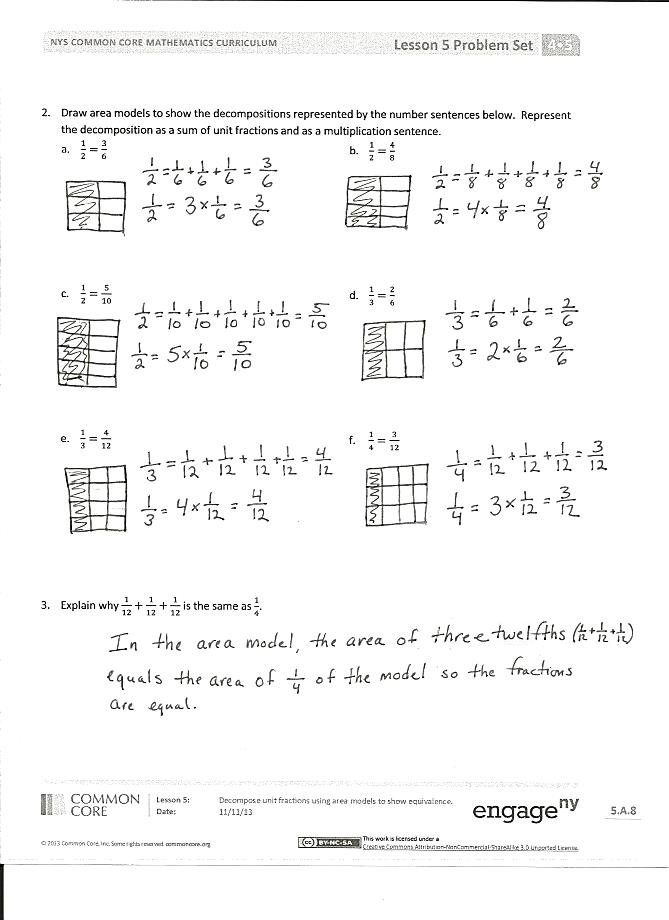 NYS COMMON CORE MATHEMATICS CURRICULUM Lesson 5 Problem Set 4•5
2. Draw area models to show the decompositions represented by the number sentences below. Represent
the decomposition as a sum of unit fractions and as a multiplication sentence.
a. 1/2 = 3/6
1/2 = 1/6 + 1/6 + 1/6 = 3/6
1/2 = 3 × 1/6 = 3/6
b. 1/2 = 4/8
1/2 = 1/8 + 1/8 + 1/8 + 1/8 = 4/8
1/2 = 4 × 1/8 = 4/8
c. 1/2 = 5/10
1/2 = 1/10 + 1/10 + 1/10 + 1/10 + 1/10 = 5/10
1/2 = 5 × 1/10 = 5/10
d. 1/3 = 2/6
1/3 = 1/6 + 1/6 = 2/6
1/3 = 2 × 1/6 = 2/6
e. 1/3 = 4/12
1/3 = 1/12 + 1/12 + 1/12 + 1/12 = 4/12
1/3 = 4 × 1/12 = 4/12
f. 1/4 = 3/12
1/4 = 1/12 + 1/12 + 1/12 = 3/12
1/4 = 3 × 1/12 = 3/12
3. Explain why 1/12 + 1/12 + 1/12 is the same as 1/4.
In the area model, the area of three twelfths (1/12 + 1/12 + 1/12)
equals the area of 1/4 of the model so the fractions
are equal.
COMMON CORE
Lesson 5: Decompose unit fractions using area models to show equivalence.
Date: 11/11/13
engage ny
5.A.8
© 2013 Common Core, Inc. Some rights reserved. commoncore.org
(cc) BY-NC-SA
This work is licensed under a
Creative Commons Attribution-NonCommercial-ShareAlike 3.0 Unported License.